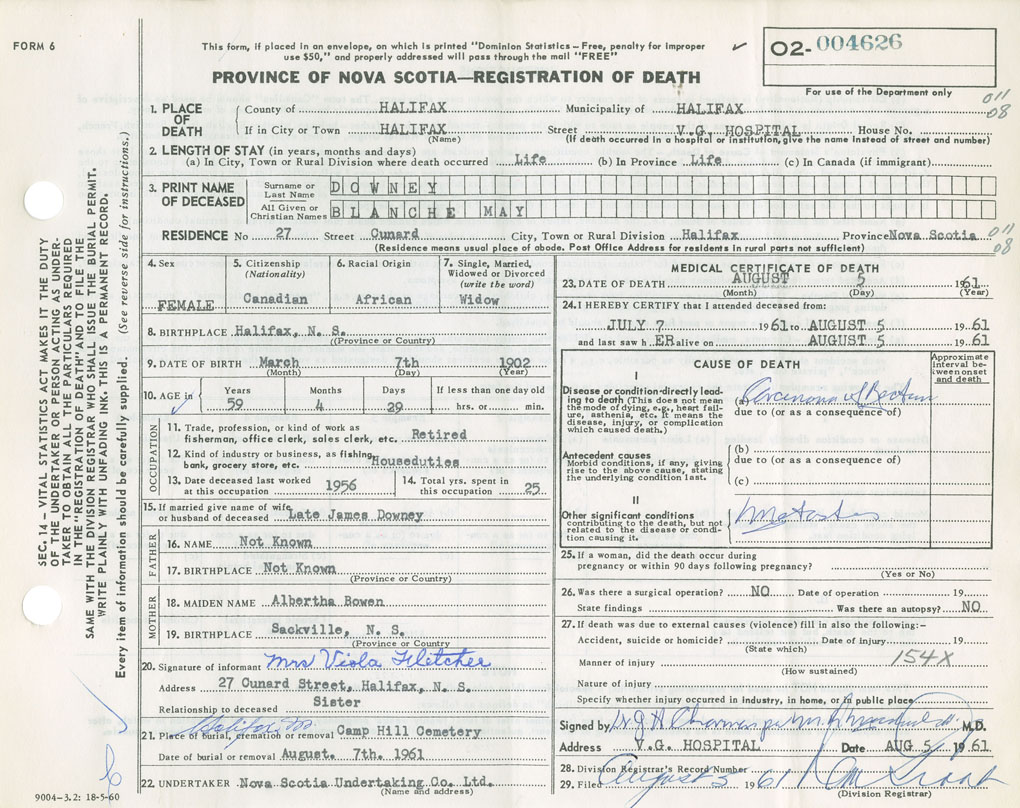 FORM 6
This form, if placed in an envelope, on which is printed "Dominion Statistics – Free, penalty for improper
use $50," and properly addressed will pass through the mail "FREE"
PROVINCE OF NOVA SCOTIA—REGISTRATION OF DEATH
O2-004626
For use of the Department only
011
08
1. PLACE OF DEATH
County of HALIFAX Municipality of HALIFAX
If in City or Town HALIFAX Street V.G. HOSPITAL House No.
(Name) (If death occurred in a hospital or institution, give the name instead of street and number)
2. LENGTH OF STAY (in years, months and days)
(a) In City, Town or Rural Division where death occurred Life (b) In Province Life (c) In Canada (if immigrant)
3. PRINT NAME OF DECEASED
Surname or Last Name DOWNEY
All Given or Christian Names BLANCHE MAY
RESIDENCE No 27 Street Cunard City, Town or Rural Division Halifax Province Nova Scotia
011
08
(Residence means usual place of abode. Post Office Address for residents in rural parts not sufficient)
4. Sex FEMALE
5. Citizenship (Nationality) Canadian
6. Racial Origin African
7. Single, Married, Widowed or Divorced (write the word) Widow
8. BIRTHPLACE Halifax, N. S.
(Province or Country)
9. DATE OF BIRTH March 7th 1902
(Month) (Day) (Year)
10. AGE in Years 59 Months 4 Days 29 If less than one day old hrs. or min.
OCCUPATION
11. Trade, profession, or kind of work as
fisherman, office clerk, sales clerk, etc. Retired
12. Kind of industry or business, as fishing,
bank, grocery store, etc. Houseduties
13. Date deceased last worked at this occupation 1956
14. Total yrs. spent in this occupation 25
15. If married give name of wife
or husband of deceased Late James Downey
FATHER
16. NAME Not Known
17. BIRTHPLACE Not Known
(Province or Country)
MOTHER
18. MAIDEN NAME Albertha Bowen
19. BIRTHPLACE Sackville, N. S.
(Province or Country)
20. Signature of informant Mrs Viola Fletcher
Address 27 Cunard Street, Halifax, N. S.
Relationship to deceased Sister
21. Place of burial, cremation or removal Camp Hill Cemetery
Date of burial or removal August. 7th. 1961
22. UNDERTAKER Nova Scotia Undertaking Co. Ltd.
(Name and address)
9004-3.2: 18-5-60
MEDICAL CERTIFICATE OF DEATH
23. DATE OF DEATH AUGUST 5 1961
(Month) (Day) (Year)
24. I HEREBY CERTIFY that I attended deceased from:
JULY 7 1961 to AUGUST 5 1961
and last saw h ER alive on AUGUST 5 1961
CAUSE OF DEATH
Approximate interval between onset and death
I
Disease or condition directly leading to death (This does not mean
the mode of dying, e.g., heart failure, asthenia, etc. It means the
disease, injury, or complication
which caused death.)
(a) Carcinoma of Rectum
due to (or as a consequence of)
Antecedent causes
Morbid conditions, if any, giving
rise to the above cause, stating
the underlying condition last.
(b)
due to (or as a consequence of)
(c)
II
Other significant conditions
contributing to the death, but not
related to the disease or condition
causing it.
25. If a woman, did the death occur during
pregnancy or within 90 days following pregnancy?
(Yes or No)
26. Was there a surgical operation? NO Date of operation 19
State findings Was there an autopsy? NO
27. If death was due to external causes (violence) fill in also the following:–
Accident, suicide or homicide? Date of injury 19
(State which)
Manner of injury 154X
(How sustained)
Nature of injury
Specify whether injury occurred in industry, in home, or in public place
Signed by M.D.
Address V.G. HOSPITAL Date AUG 5 1961
28. Division Registrar's Record Number
29. Filed August 5 1961
(Division Registrar)
SEC. 14 – VITAL STATISTICS ACT MAKES IT THE DUTY
OF THE UNDERTAKER OR PERSON ACTING AS UNDERTAKER
TO OBTAIN ALL THE PARTICULARS REQUIRED
IN THE "REGISTRATION OF DEATH" AND TO FILE THE
SAME WITH THE DIVISION REGISTRAR WHO SHALL ISSUE THE BURIAL PERMIT.
WRITE PLAINLY WITH UNFADING INK. THIS IS A PERMANENT RECORD.
Every item of information should be carefully supplied. (See reverse side for instructions.)